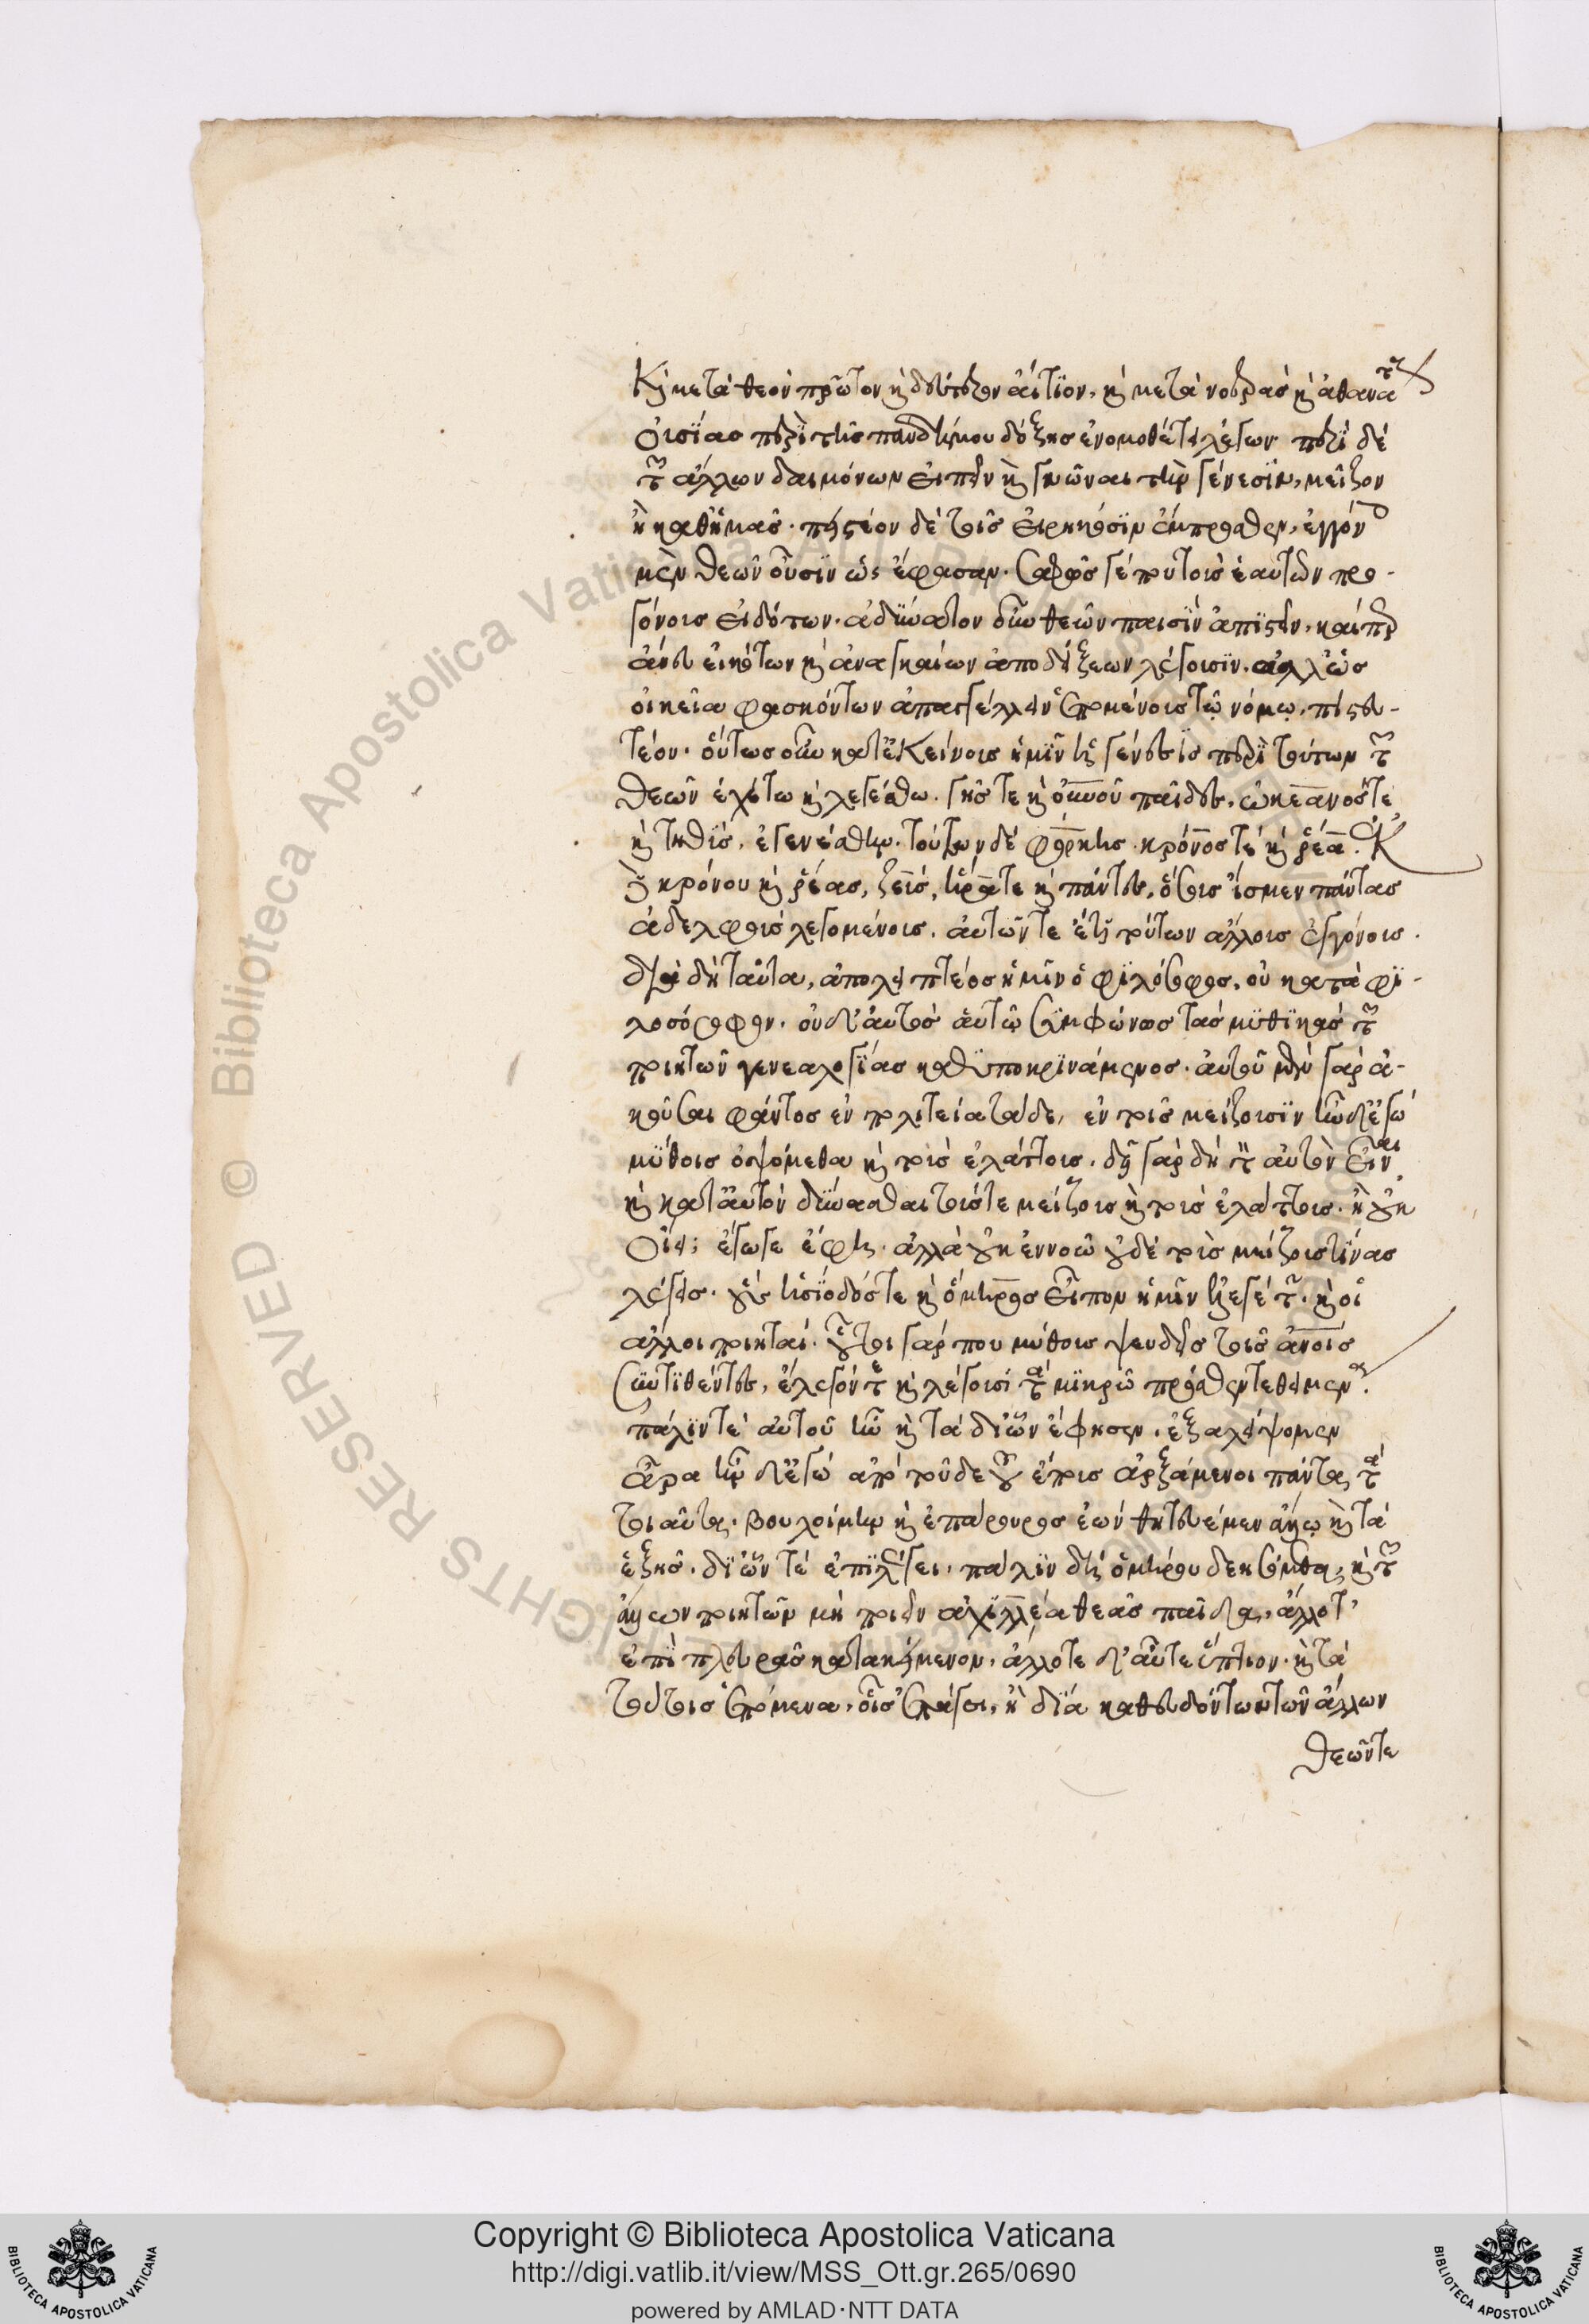 Καὶ μετὰ θεὸν πρῶτον καὶ δεύτερον αἴτιον, καὶ μετὰ νοερὰς καὶ ἀθανάτους
οὐσίας περὶ τῆς πανδήμου δόξης ἐνομοθέτει λέγων· περὶ δὲ
τῶν ἄλλων δαιμόνων εἰπεῖν καὶ γνῶναι τὴν γένεσιν, μεῖζον
ἢ καθ' ἡμᾶς· πειστέον δὲ τοῖς εἰρηκόσιν ἔμπροσθεν, ἐγγόνοις
μὲν θεῶν οὖσιν ὡς ἔφασαν· σαφῶς γέ που τοὺς ἑαυτῶν προ-
γόνους εἰδότων· ἀδύνατον οὖν θεῶν παισὶν ἀπιστεῖν, καίπερ
ἄνευ εἰκότων καὶ ἀναγκαίων ἀποδείξεων λέγουσιν· ἀλλ' ὡς
οἰκεῖα φασκόντων ἀπαγγέλλειν ἑπομένους τῷ νόμῳ, πιστευ-
τέον· οὕτως οὖν κατ' ἐκείνους ἡμῖν ἡ γένεσις περὶ τούτων τῶν
θεῶν ἐχέτω καὶ λεγέσθω· γῆς τε καὶ οὐνοῦ παῖδες, ὠκεανός τε
καὶ τηθὺς, ἐγενέσθην· τούτων δὲ φόρκης κρόνος τὲ καὶ ῥέα· Ἐκ
δὲ κρόνου καὶ ῥέας, ζεὺς, ἥρα τε καὶ πάντες, ὅσους ἴσμεν πάντας
ἀδελφοὺς λεγομένους, αὐτῶν τε ἔτι τούτων ἄλλους ἐγγόνους·
διὰ δὴ ταῦτα, ἀπολειπτέος ἡμῖν ὁ φιλόσοφος, οὐ κατὰ φι-
λοσόφων· οὐδ' αὐτὸς αὑτῷ συμφώνως τὰς μυθικὰς τῶν
ποιητῶν γενεαλογίας καθυποκρινάμενος· αὐτοῦ μὲν γὰρ ἀ-
κοῦσαι φάντος ἐν πολιτείᾳ τάδε, ἐν τοῖς μείζοσιν ἦν δ' ἐγὼ
μύθοις ὀψόμεθα καὶ τοὺς ἐλάττους, δεῖ γὰρ δὴ τὸν αὐτὸν εἶναι
καὶ κατ' αὐτὸν δύνασθαι τούς τε μείζους καὶ τοὺς ἐλάττους· ἢ οὐκ
οἴει; ἔγωγε ἔφη· ἀλλὰ οὐκ ἐννοῶ οὐδὲ τοὺς μείζους τίνας
λέγεις· οὓς ἡσίοδός τε καὶ ὅμηρος εἶπον ἡμῖν ἐλεγέτην· καὶ οἱ
ἄλλοι ποιηταί· οὗτοι γάρ που μύθους ψευδεῖς τοῖς ἀνοις
συντιθέντες, ἔλεγόν τε καὶ λέγουσι τὰ μικρῷ πρόσθεν τεθειμένα·
πάλιν τε αὐτοῦ ἦν καὶ τὰ δι' ὧν ἔφησεν· ἐξαλείψομεν
ἄρα ἦν δ' ἐγὼ ἀπὸ τοῦδε τοῦ ἔπους ἀρξάμενοι πάντα τὰ
τοιαῦτα· βουλοίμην κ' ἐπάρουρος ἐὼν θητευέμεν ἄλλῳ καὶ τὰ
ἑξῆς· δι' ὧν τὲ ἐπιλέγει, πάλιν δὴ ὁμήρου δεησόμεθα, καὶ τῶν
ἄλλων ποιητῶν μὴ ποιεῖν ἀχιλλέα θεᾶς παῖδα, ἄλλοτ'
ἐπὶ πλευρᾶς κατακείμενον, ἄλλοτε δ' αὖτε ὕπτιον· καὶ τὰ
τούτοις ἑπόμενα, οἷς ἐπάγει, ἢ δία καθευδόντων τῶν ἄλλων
θεῶν τε
Copyright © Biblioteca Apostolica Vaticana
http://digi.vatlib.it/view/MSS_Ott.gr.265/0690
powered by AMLAD·NTT DATA